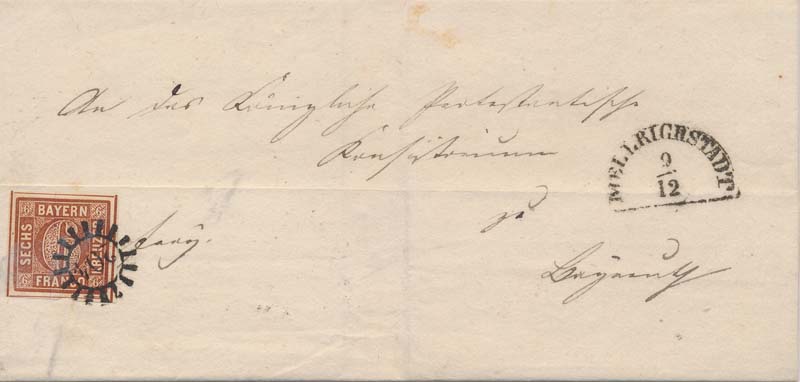 An das Königliche Protestantische
Konsistorium
zu
Bayreuth
frey.
MELLRICHSTADT
9
12
BAYERN
SECHS
KREUZER
FRANCO
6
6
6
6